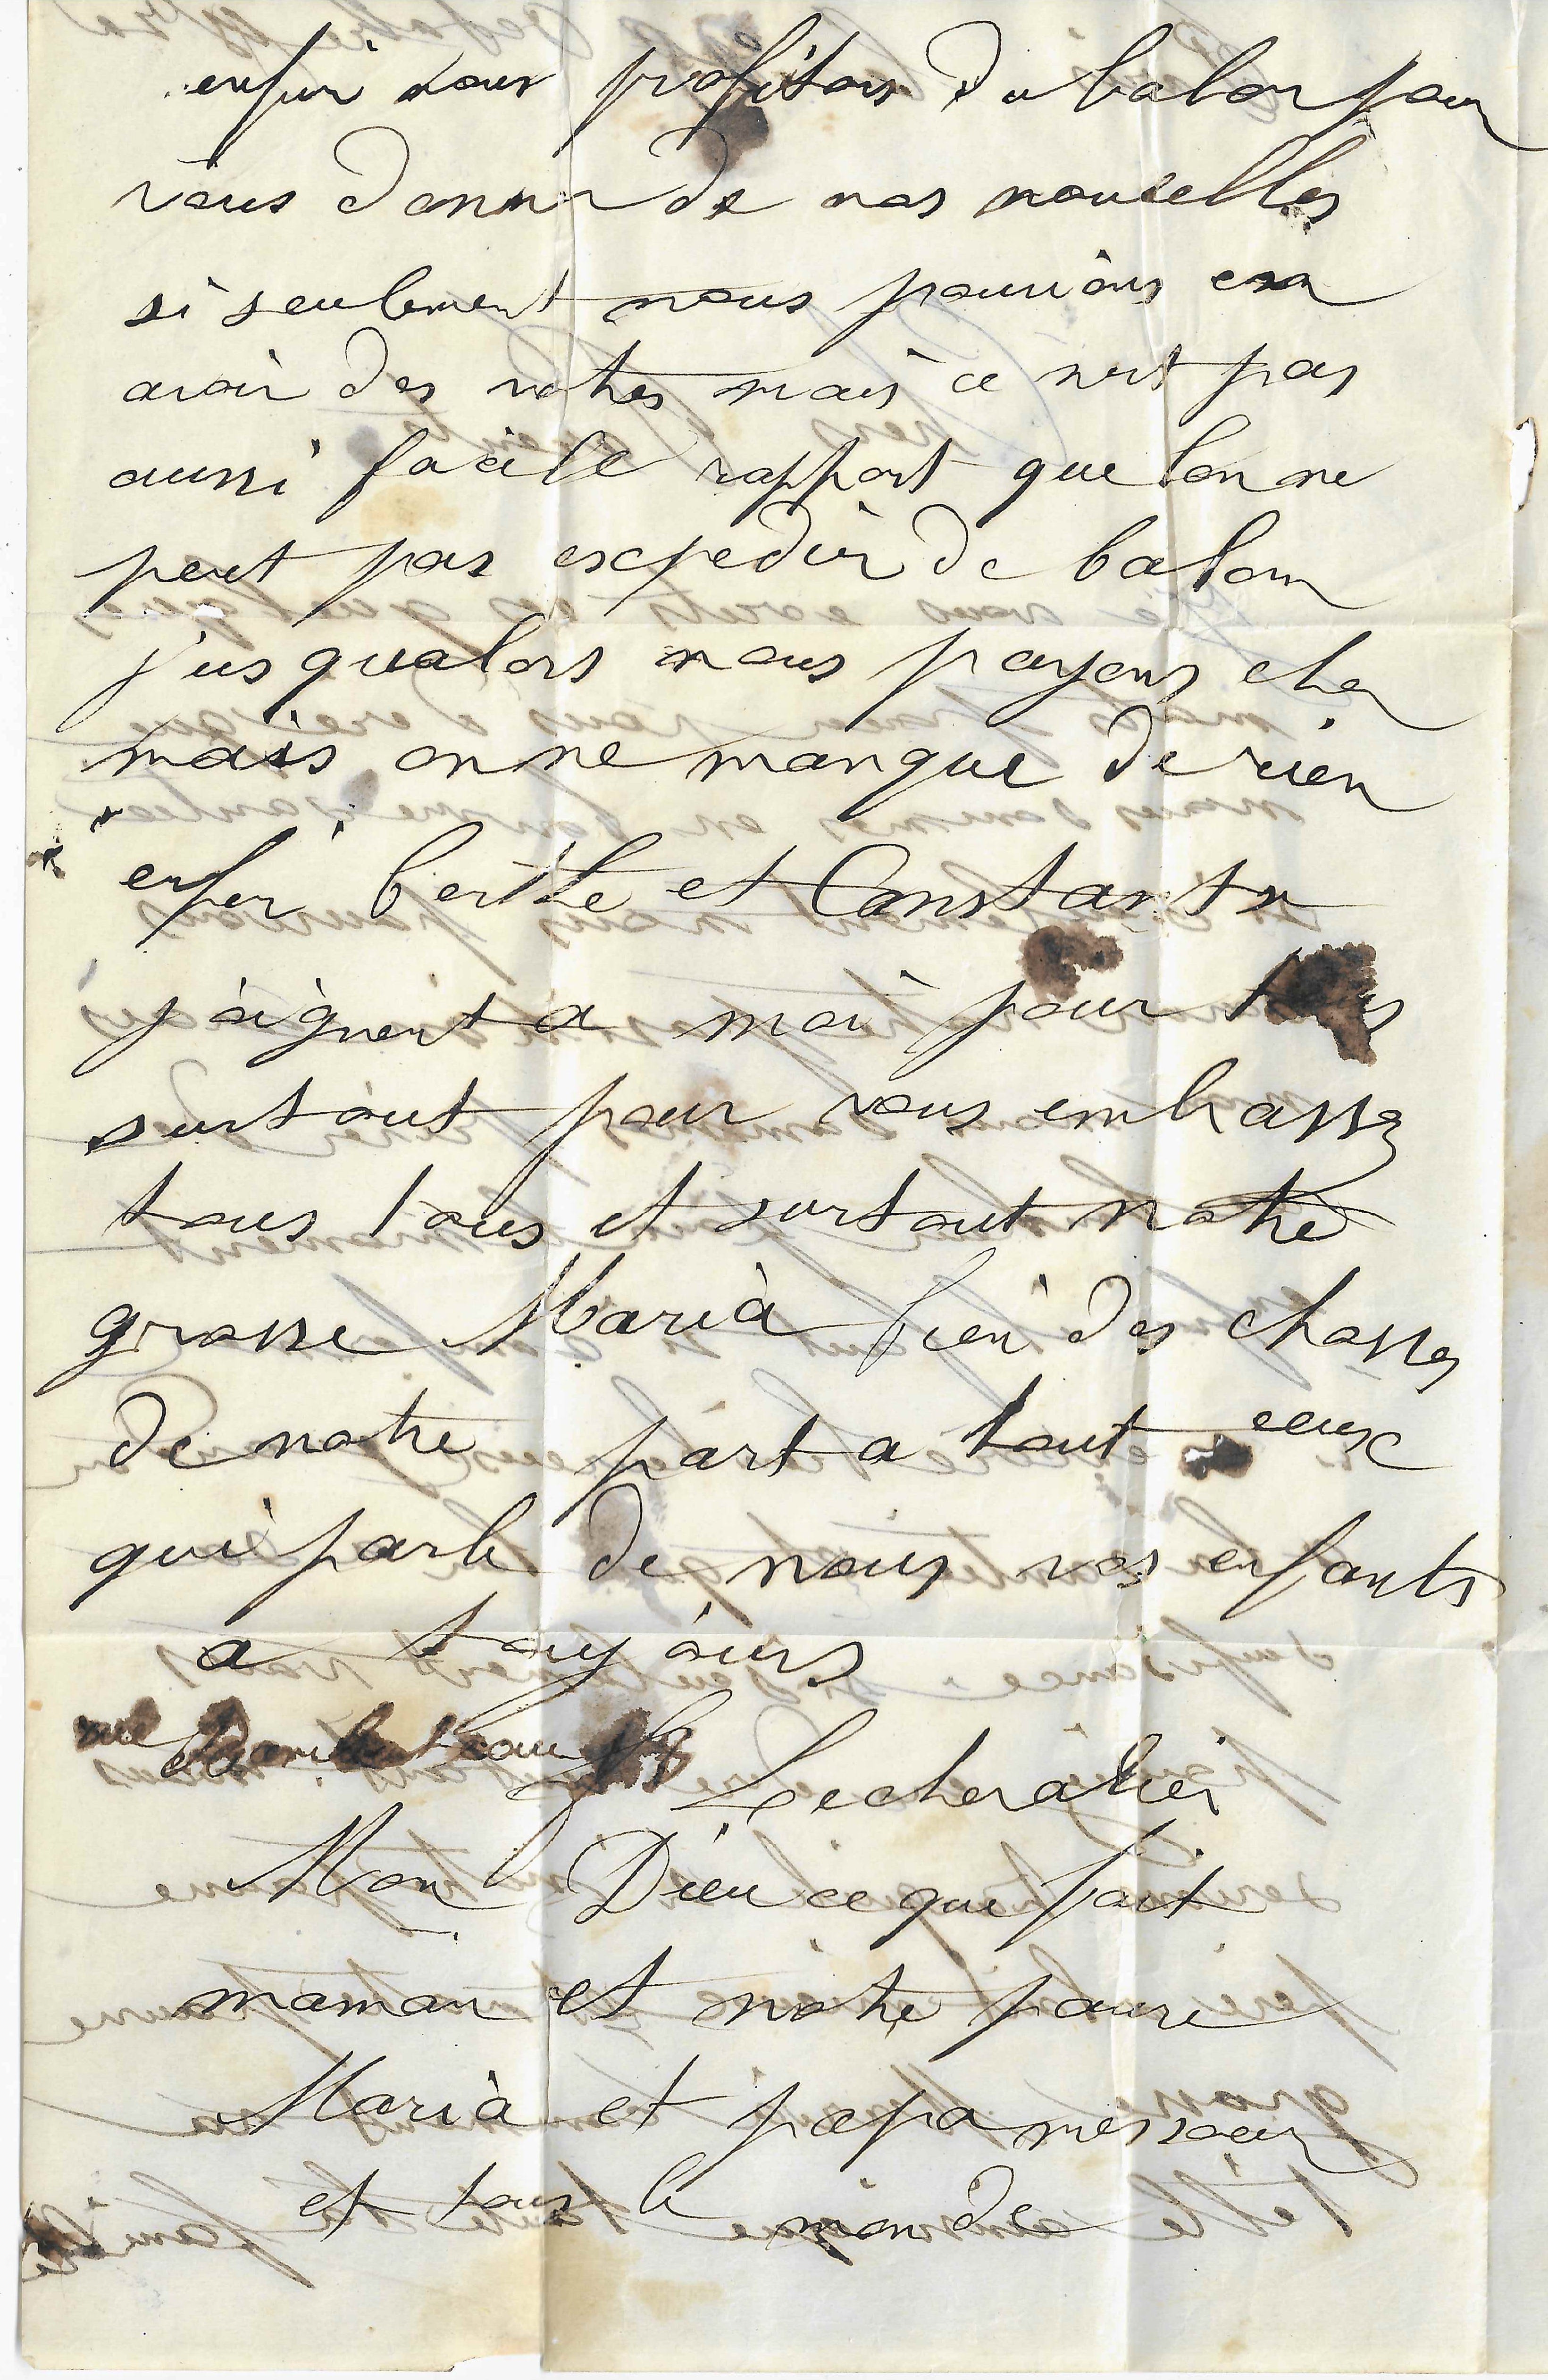 enfin nous profitons du balon pour
vous donner de nos nouvelles
si seulement nous pouvions en
avoir des votres mais ce nest pas
aussi facile rapport que lon ne
peut pas expedier de balon
jusqualors nous payons cher
mais on ne manque de rien
enfin berthe et Constantin
joignent a moi pour tous
surtout pour vous embrasser
tous tous et surtout notre
grosse Maria bien des chosses
de notre part a tout ceux
qui parle de nous vos enfants
a toujours
rue
Lechevalier
Mon Dieu ce que fait
maman et notre pauvre
Maria et papa mes soeur
et tous le monde